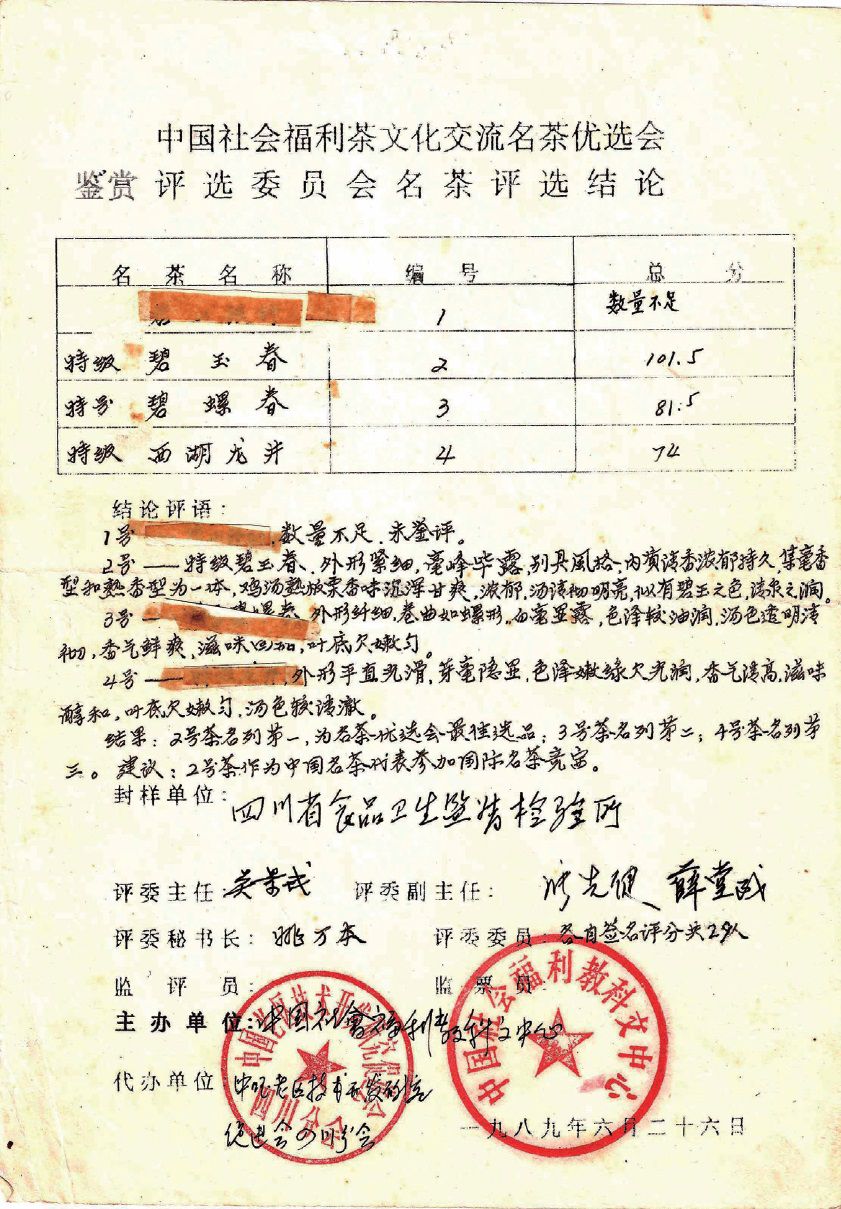 中国社会福利茶文化交流名茶优选会
鉴赏评选委员会名茶评选结论
名茶名称 编号 总分
1 数量不足
特级 碧玉春 2 101.5
特另 碧螺春 3 81.5
特级 西湖龙井 4 74
结论评语：
1号 数量不足、未鉴评。
2号——特级碧玉春、外形紧细，毫峰毕露，别具風格、内质清香浓郁持久，集毫香
型和熟香型为一体，鸡汤熟放栗香味沉浑甘爽，浓郁，汤清彻明亮，似有碧玉之色，清泉之润。
3号— 碧螺春、外形纤细，卷曲如螺形，白毫显露，色泽较油润，汤色透明清
彻，香气鲜爽、滋味回和，叶底欠嫩匀。
4号— 外形平直光滑，芽毫隐显，色泽嫩绿欠光润，香气清高，滋味
醇和，叶底欠嫩匀，汤色较清澈。
结果：2号茶名列第一，为名茶优选会最佳选品；3号茶名列第二；4号茶名列第
三。建议：2号茶作为中国名茶代表参加国际名茶竞富。
封样单位：四川省食品卫生监督检验所
评委主任：吴荣成 评委副主任： 薛堂成
评委秘书长：姚万本 评委委员：各自签名评分共2张
监评员： 监票员
主办单位：中国社會福利教科文中心
代办单位 中国老区技术开发研究
促进会四川分会
中国老区技术开发研究促进会
四川分会
中国社会福利教科文中心
一九八九年六月二十六日